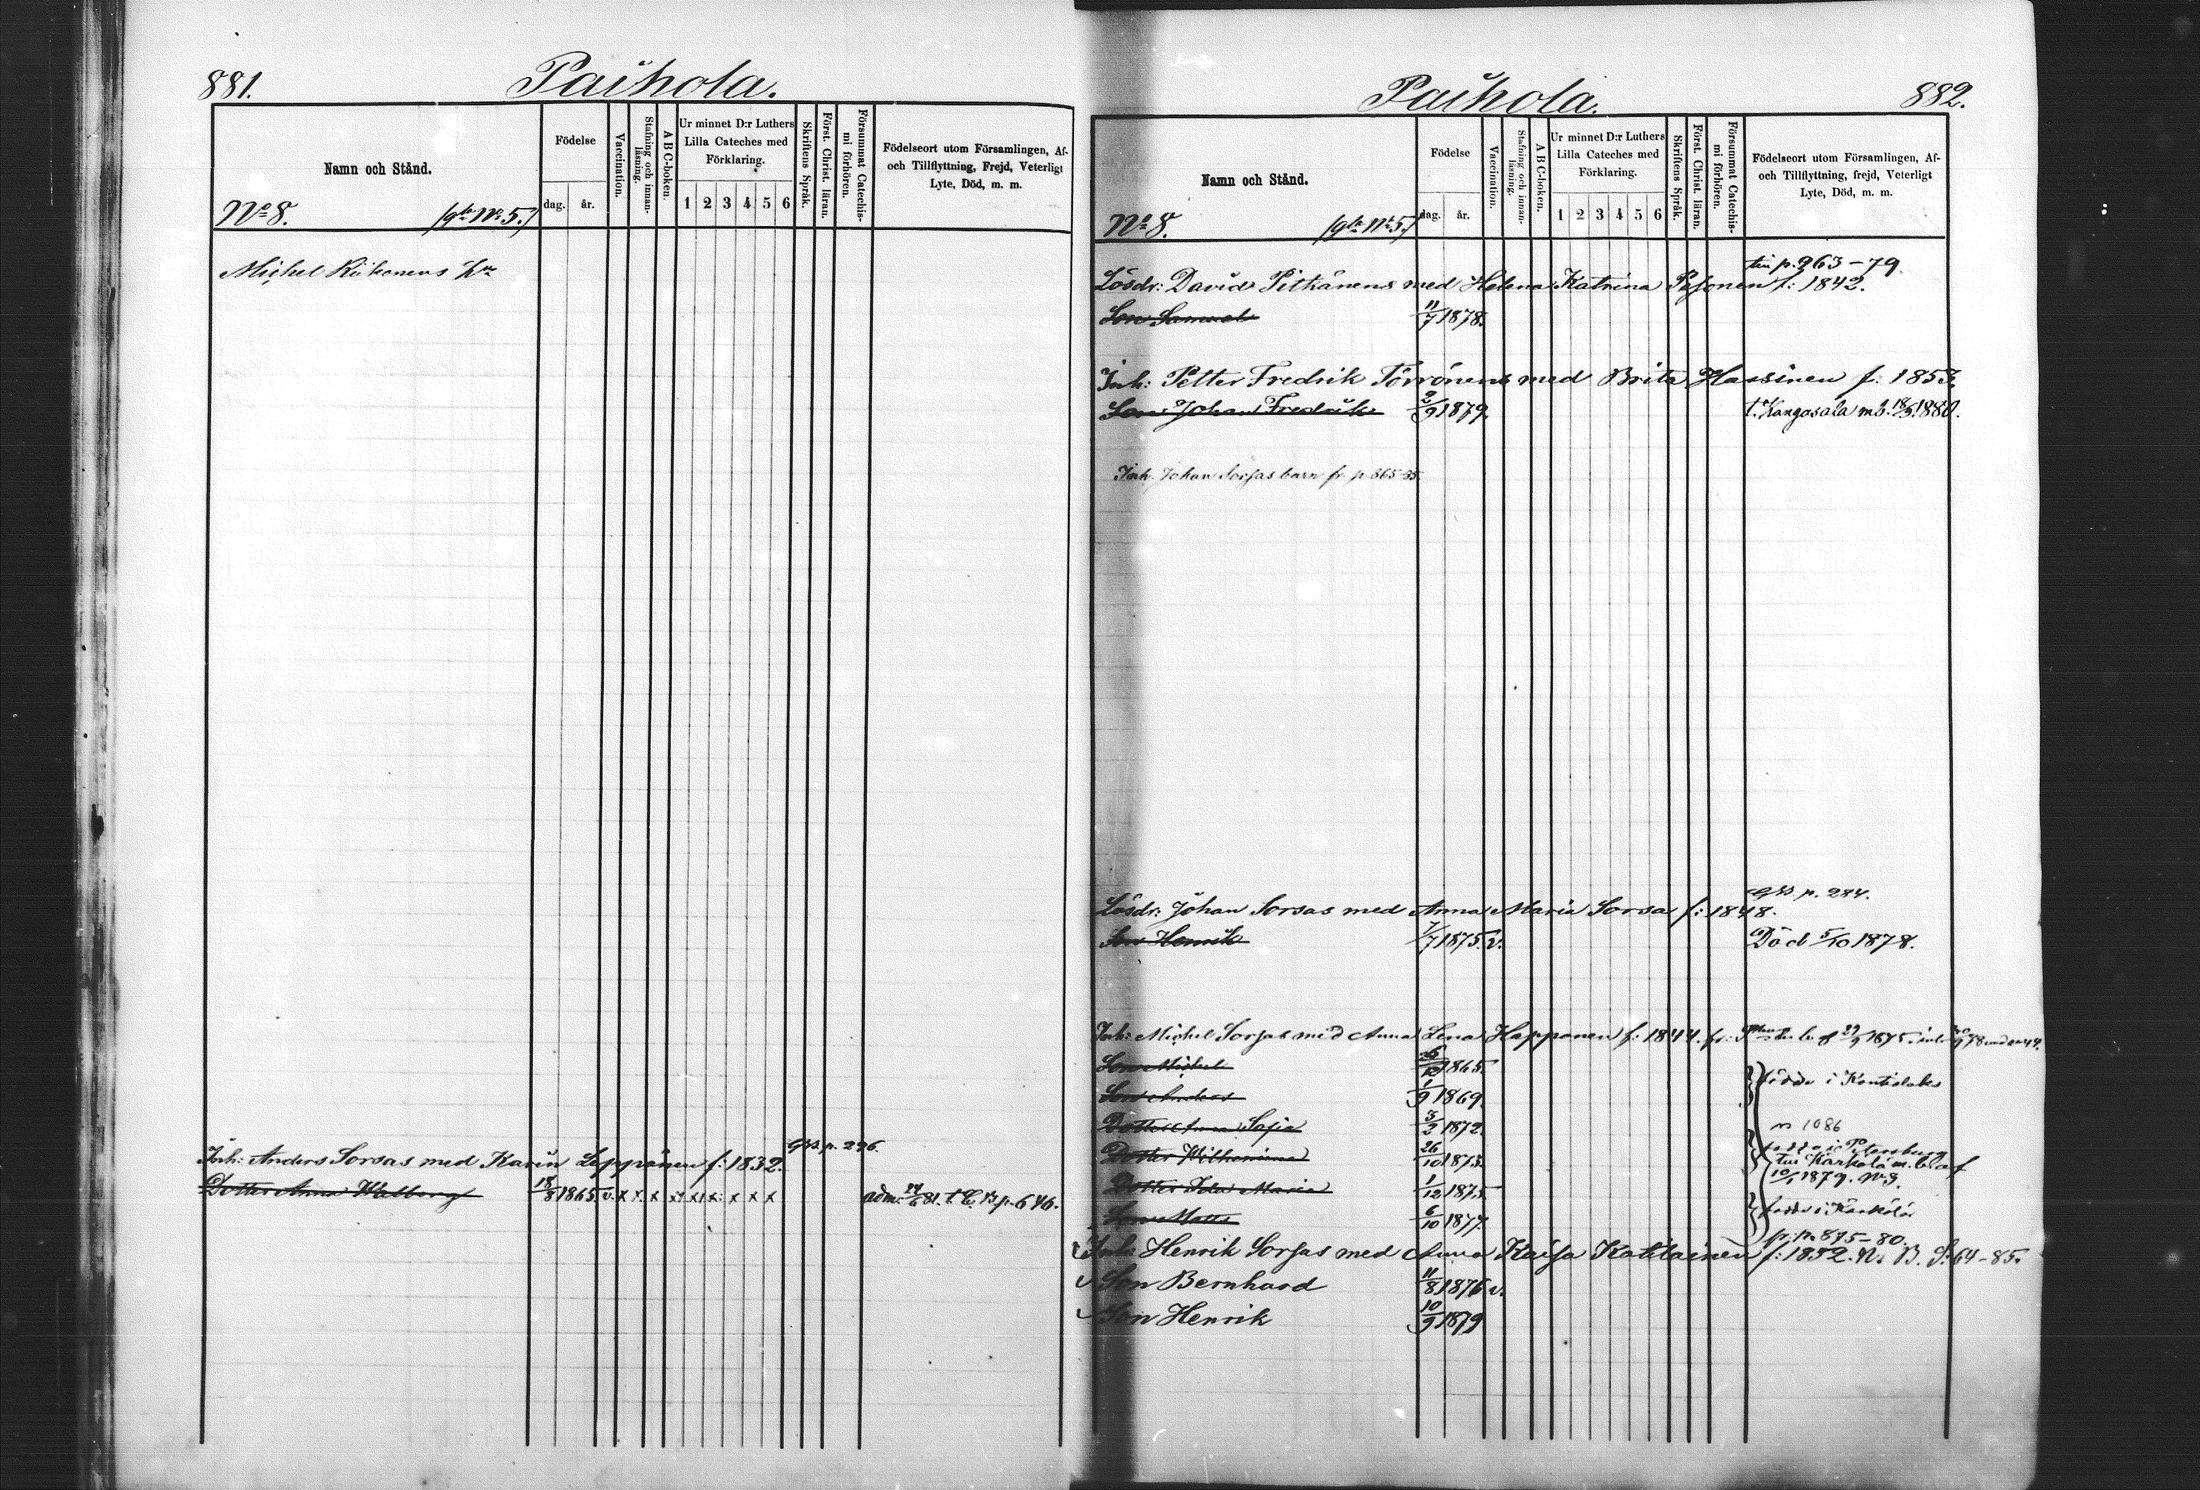 881.
Paihola.
Namn och Stånd.
Födelse
dag.
år.
Vaccination.
Stafning och innan-
läsning.
A B C-boken.
Ur minnet D:r Luthers
Lilla Cateches med
Förklaring.
1 2 3 4 5 6
Skriftens Språk.
Först. Christ. läran.
Försummat Catechis-
mi förhören.
Födelseort utom Församlingen, Af-
och Tillflyttning, Frejd, Veterligt
Lyte, Död, m. m.
No 8.
No 5.)
Michel
Inh: Anders Sorsas med Karin Leppänen f: 1832. p. 296.
Dotter Anna Walborg 18/8 1865. v. x x x x x x x x x adm: 81. p. 646.
Paihola.
882.
Namn och Stånd.
Födelse
dag.
år.
Vaccination.
Stafning och innan-
läsning.
A B C-boken.
Ur minnet D:r Luthers
Lilla Cateches med
Förklaring.
1 2 3 4 5 6
Skriftens Språk.
Först. Christ. läran.
Försummat Catechis-
mi förhören.
Födelseort utom Församlingen, Af-
och Tillflyttning, frejd, Veterligt
Lyte, Död, m. m.
No 8.
No 5.)
p. 963-79.
Lösdr: David Pitkänens med Helena Katrina f: 1842.
Son Samuel 11/7 1878.
Inh: Petter Fredrik Törrönens med Brita Hassinen f: 1853.
Son Johan Fredrik 2/9 1879. t. Kangasala m. b. 1880.
Inh. Johan Sorsas barn fr. p. 865-85.
p. 284.
Lösdr: Johan Sorsas med Anna Maria Sorsa f: 1848.
Son Henrik 1/7 1875. v. Död 5/10 1878.
Inh: Michel Sorsas med Anna Lena Happonen f: 1844. fr: 1875.
Son Michel 1865.
Son Anders 1/9 1869. födde i Kontiolaks
Dotter Anna Sofia 5/2 1872. n 1086
Dotter Wilhelmina 26/10 1873.
Dotter Ida Maria 1/12 1875. 1879.
Son Matts 6/10 1877.
fr. p. 875-80.
Inh: Henrik Sorsas med Anna Kaisa Katilainen f: 1852. N. B. S. 64-85.
Son Bernhard 11/8 1876 v.
Son Henrik 10/9 1879